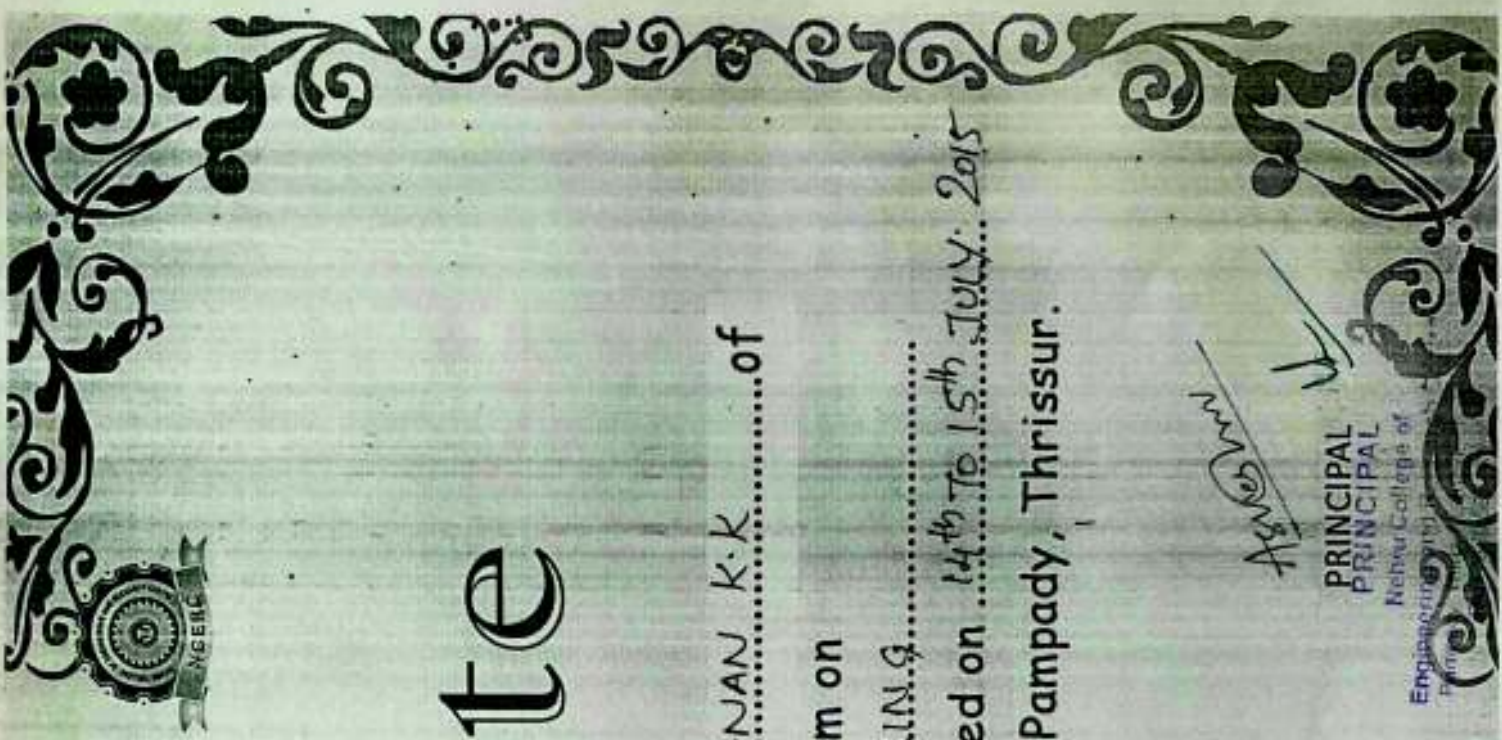 NCERC
te
NAN K.K of
m on
ING
ed on 14th TO 15th JULY. 2015
Pampady, Thrissur.
PRINCIPAL
PRINCIPAL
Nehru College of
Engineering